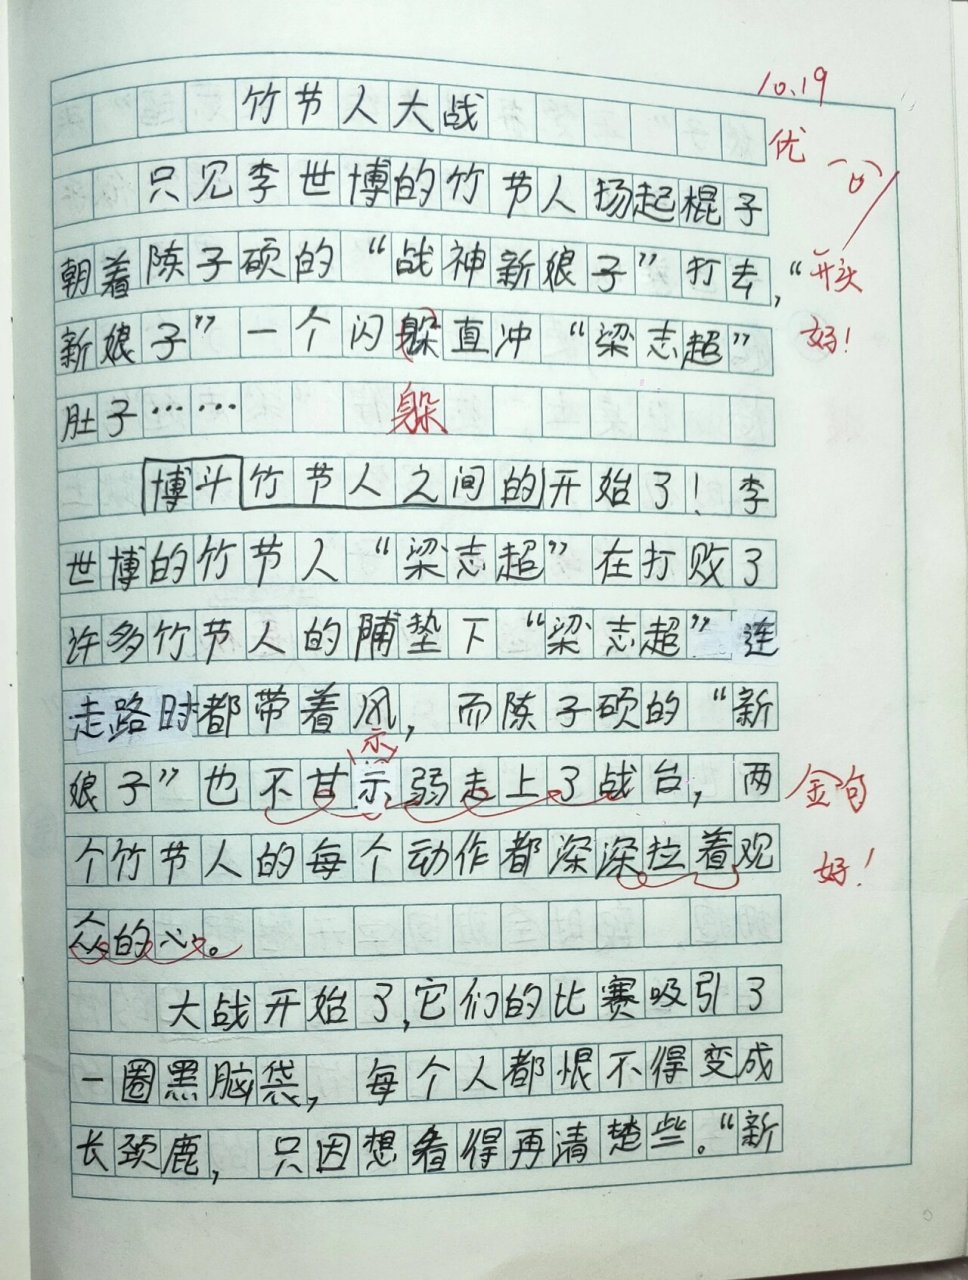 10.19
竹节人大战
优
只见李世博的竹节人扬起棍子
朝着陈子硕的“战神新娘子”打去，“
开头
新娘子”一个闪躲直冲“梁志超”
好！
肚子……
躲
博斗竹节人之间的开始了！李
世博的竹节人“梁志超”在打败了
许多竹节人的陠垫下“梁志超”连
走路时都带着风，而陈子硕的“新
示
娘子”也不甘示弱走上了战台，两
金句
个竹节人的每个动作都深深拉着观
好！
众的心。
大战开始了，它们的比赛吸引了
一圈黑脑袋，每个人都恨不得变成
长颈鹿，只因想看得再清楚些。“新